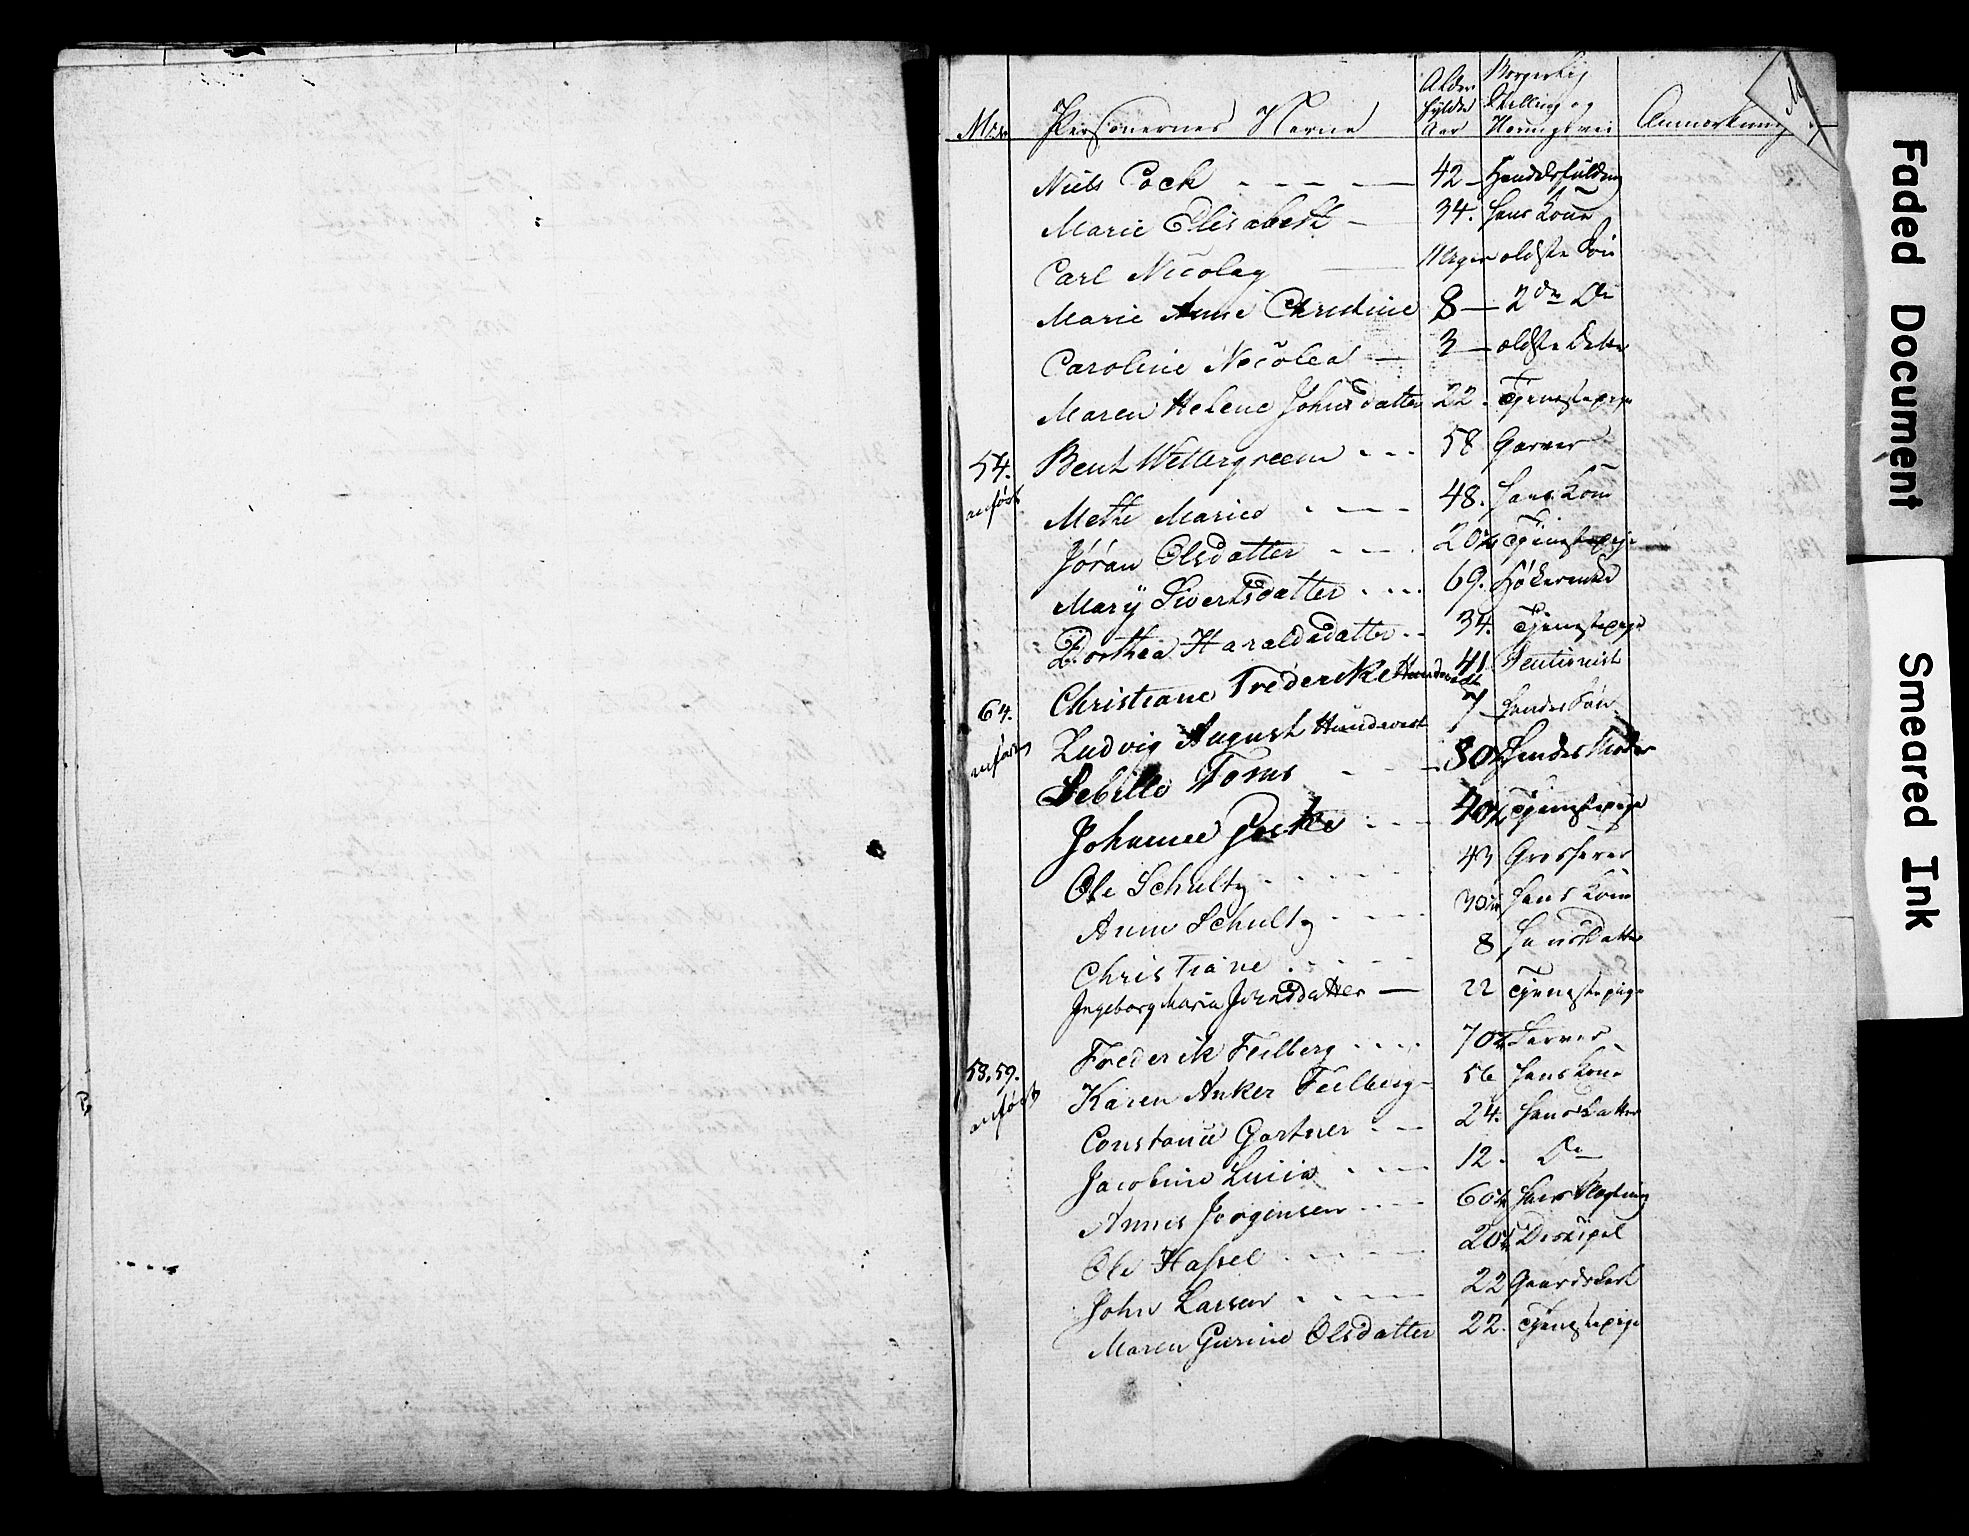 Borgerlig
Alder Stilling og
fyldte
No. Personernes Navne Aar Næringsvei Anmerkning
Niels Cock - - - 42 -
Marie Elisabeth - 34. hans Kone
Carl Nicolay 11 ældste Søn
Marie Anne Christine 8 - 2den Do
Caroline Nicolea - 3 - ældste Datter
Maren Helene Johnsdatter 22. Tjenestepige
54. Bent Wettergreen - - - 58 Garver
Methe Marie - - - 48. hans Kone
Jøran Olsdatter - - - 20 Tjenestepige
Mary Sivertsdatter - - - 69. Høkerenke
Dorthea Haraldsdatter - - 34. Tjenestepige
Christiane Frederikke Hundevadt 41 Pentionist
64. Ludvig August Hundevadt 7 hendes Søn
Sebille Toms - - - 80 hendes Moder
Johanne - - - 40 Tjenestepige
Ole Schultz - - - 43 Grosserer
Anne Schultz - - - 30 hans Kone
Christiane - - - 8 hans Datter
Ingeborg Maria Jensdatter - 22 Tjenestepige
Frederik Feilberg - - - 70
58,59. Karen Anker Feilberg - 56 hans Kone
Constance Gartner - - 24. hans Datter
Jacobine Lucia - - - 12. Do
Annes Jørgensen - - - 60 hans Slægtning
Ole Hassel - - - 20 Discipel
John Larsen - - - 22 Gaardskarl
Maren Gurine Olsdatter 22. Tjenestepige
Faded Document
Smeared Ink